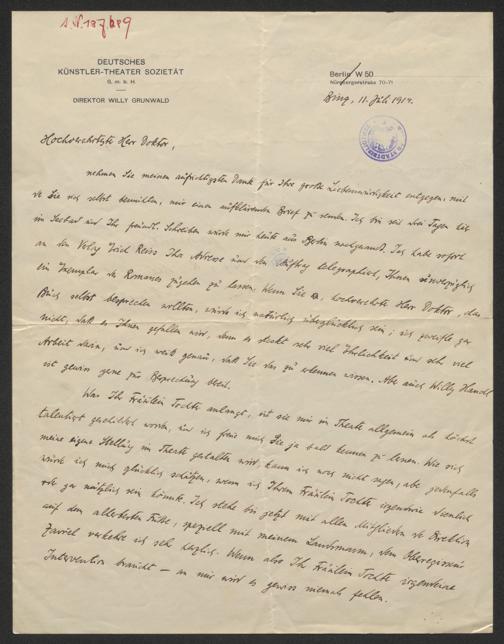 I.N. 197.689
DEUTSCHES
KÜNSTLER-THEATER SOZIETÄT
G. m. b. H.
DIREKTOR WILLY GRUNWALD
Berlin W 50
Nürnbergerstraße 70-71
Binz, 11. Juli 1914.
Hochverehrtester Herr Doktor,
nehmen Sie meinen aufrichtigsten Dank für Ihre große Liebenswürdigkeit entgegen, mit
der Sie sich selbst bemühten, mir einen aufklärenden Brief zu senden. Ich bin seit drei Tagen hier
im Seebad und Ihr freundl. Schreiben wurde mir heute aus Berlin nachgesandt. Ich habe sofort
an den Verlag Erich Reiss Ihre Adresse und den Auftrag telegraphiert, Ihnen unverzüglich
ein Exemplar des Romanes zugehen zu lassen. Wenn Sie, hochverehrter Herr Doktor, das
Buch selbst besprechen wollten, würde ich natürlich überglücklich sein; ich zweifle gar
nicht, daß es Ihnen gefallen wird, denn es steckt sehr viel Ehrlichkeit und sehr viel
Arbeit darin, und ich weiß genau, daß Sie das zu erkennen wissen. Aber auch Willy Handl
ist gewiss gerne zur Besprechung bereit.
Was Ihr Fräulein Tochter anlangt, ist sie mir im Theater allgemein als höchst
talentiert geschildert worden, und ich freue mich Sie ja bald kennen zu lernen. Wie sich
meine eigene Stellung im Theater gestalten wird, kann ich noch nicht sagen, aber jedenfalls
würde ich mich glücklich schätzen, wenn ich Ihrem Fräulein Tochter irgendwie dienlich
oder gar nützlich sein könnte. Ich stehe bis jetzt mit allen Mitgliedern der Direktion
auf dem allerbesten Fuße, speziell mit meinem Landsmann, dem Oberregisseur
verkehre ich sehr herzlich. Wenn also Ihr Fräulein Tochter irgendeine
Intervention braucht – an mir wird es gewiss niemals fehlen.